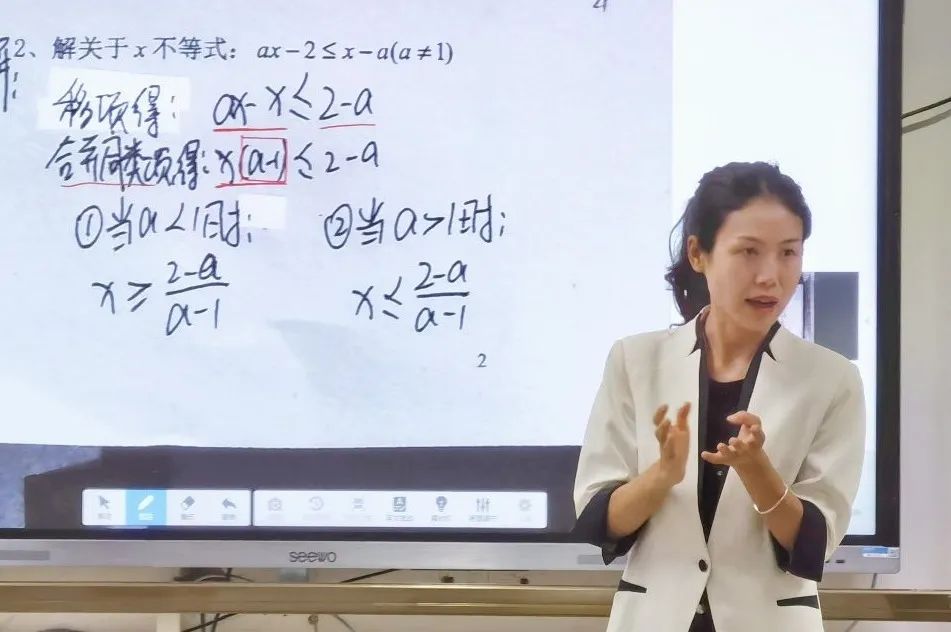 2、解关于 x 不等式：ax－2≤x－a(a≠1)
移项得：ax－x≤2－a
合并同类项得：x(a－1)≤2－a
①当a<1时； ②当a>1时；
x≥\frac{2－a}{a－1} x≤\frac{2－a}{a－1}
2
seewo